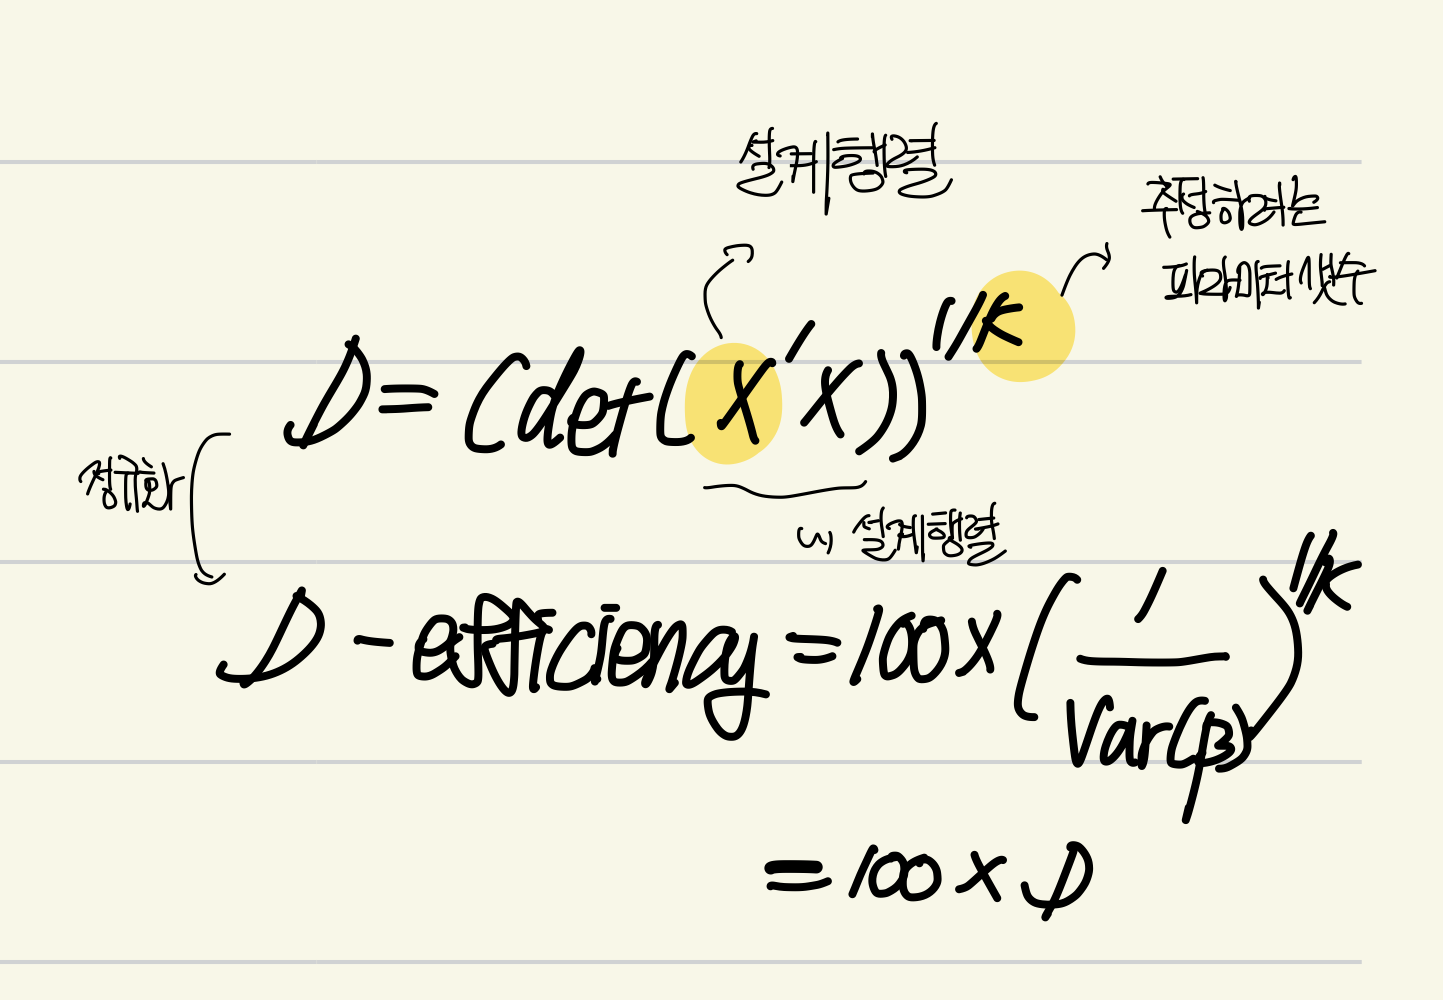 설계행렬
추정하려는
파라미터 갯수
D = (det(X'X))^1/K
정규화
↳ 설계행렬
D - efficiency = 100 X (1/Var(β))^1/K
= 100 X D